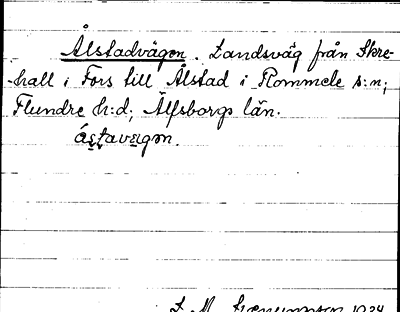 Ålstadvägen. Landsväg från Skre-
hall i Fors till Ålstad i Rommele s:n;
Flundre h:d; Älfsborgs län.
åstaveigən.
1924